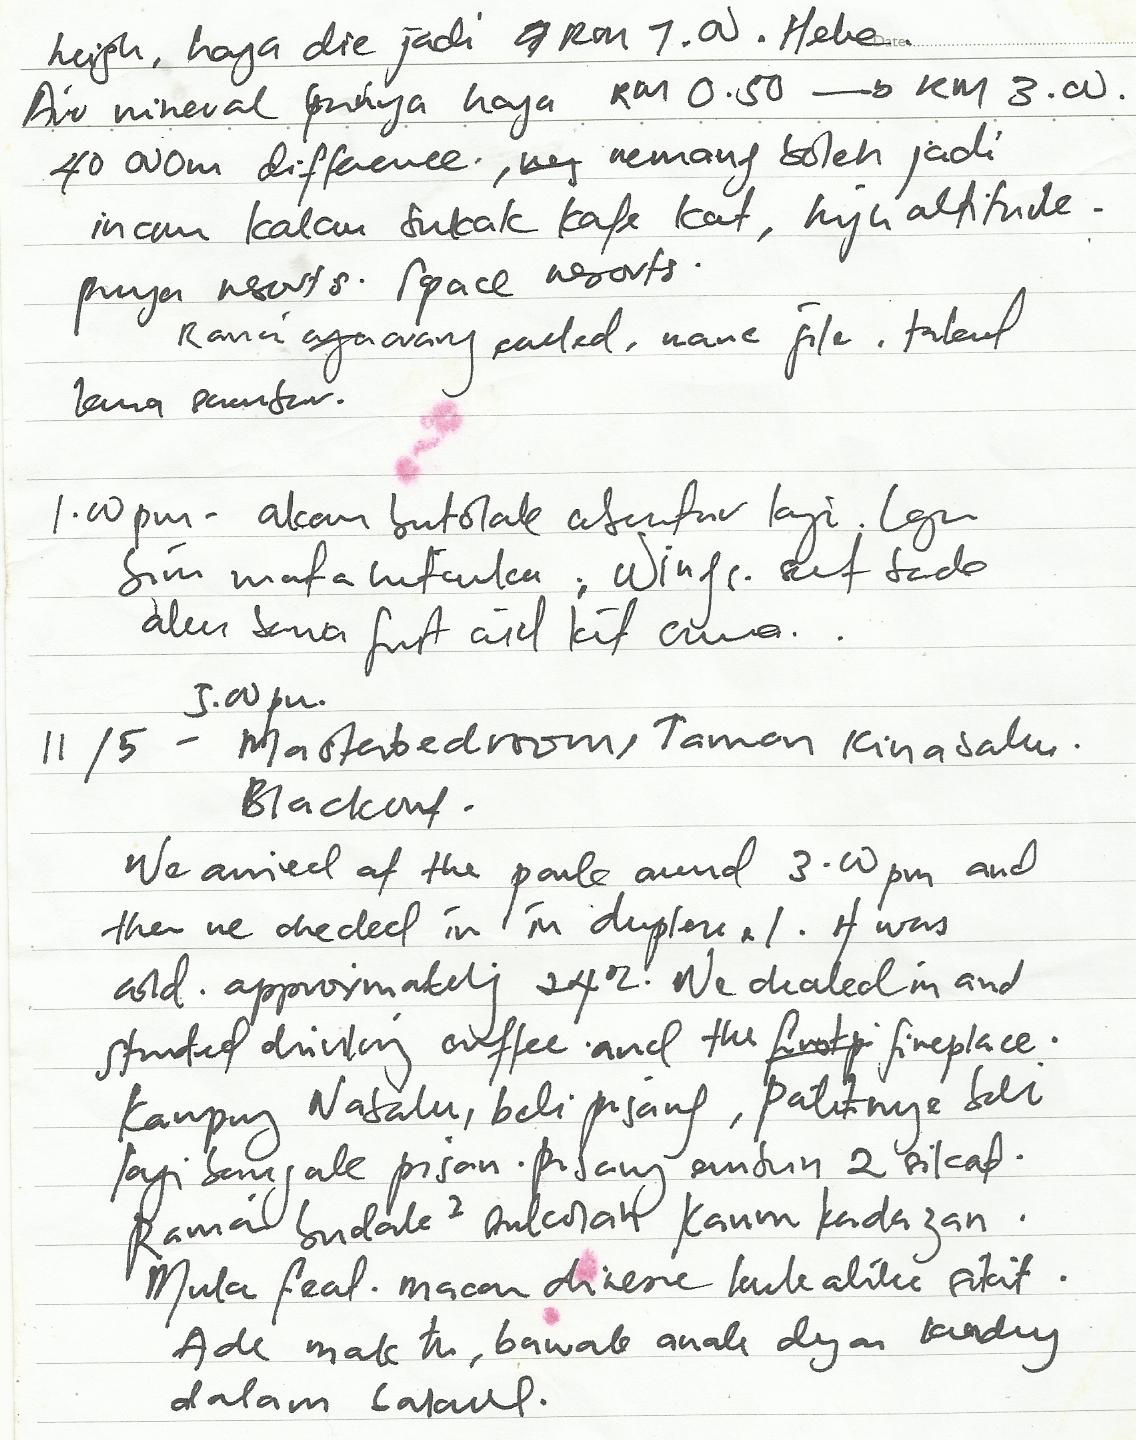 heigh, haga die jadi RM 7.00. Hehe. Date
Air mineral punya haga RM 0.50 → RM 3.00.
40 000m difference., memang boleh jadi
incom kalau bukak kafe kat, high altitude.
punya resorts. Space resorts.
Ramai orang, naik file. takut
lama
1.00 pm - akan bertolak lagi. Lagu
Sini mata hitamku, Wings.
alem bawa first aid kit
5.00 pm.
11/5 - Masterbedroom, Taman Kinasaku.
Blackout.
We arrived at the park around 3.00 pm and
then we checked in in duplex 1. It was
cold. approximately 24°C. We checked in and
started drinking coffee and the fireplace.
Kampung Nasaku, beli pisang, Patutnye beli
lagi banyak pisan. Pisang embun 2 sikat.
Ramai budak² sukolah Kaum kadazan.
Muka feat. macam chinese lukealike sikit.
Ade mak tu, bawak anak dgan
dalam bakul.